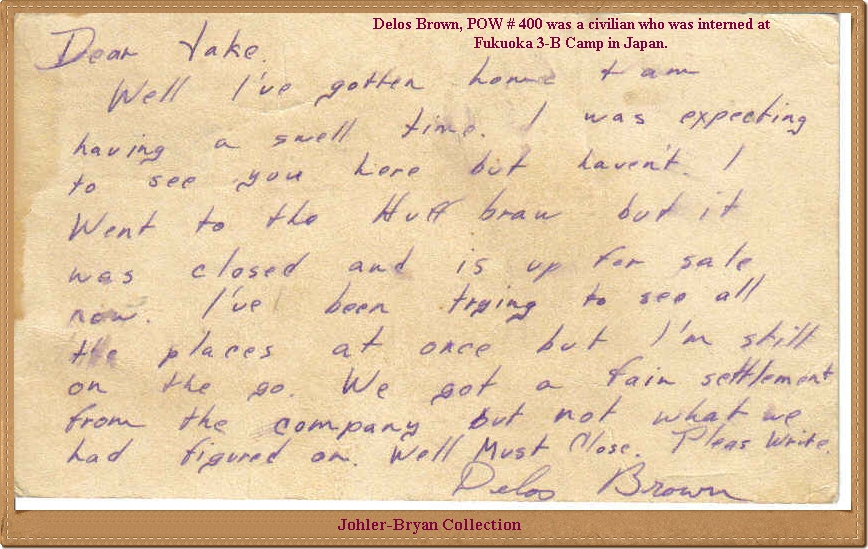 Delos Brown, POW # 400 was a civilian who was interned at
Fukuoka 3-B Camp in Japan.
Dear Jake.
Well I've gotten home + am
having a swell time. I was expecting
to see you here but haven't. I
Went to the Huff braw but it
was closed and is up for sale
now. I've been trying to see all
the places at once but I'm still
on the go. We got a fair settlement
from the company but not what we
had figured on. Well Must Close. Pleas Write.
Delos Brown
Johler-Bryan Collection